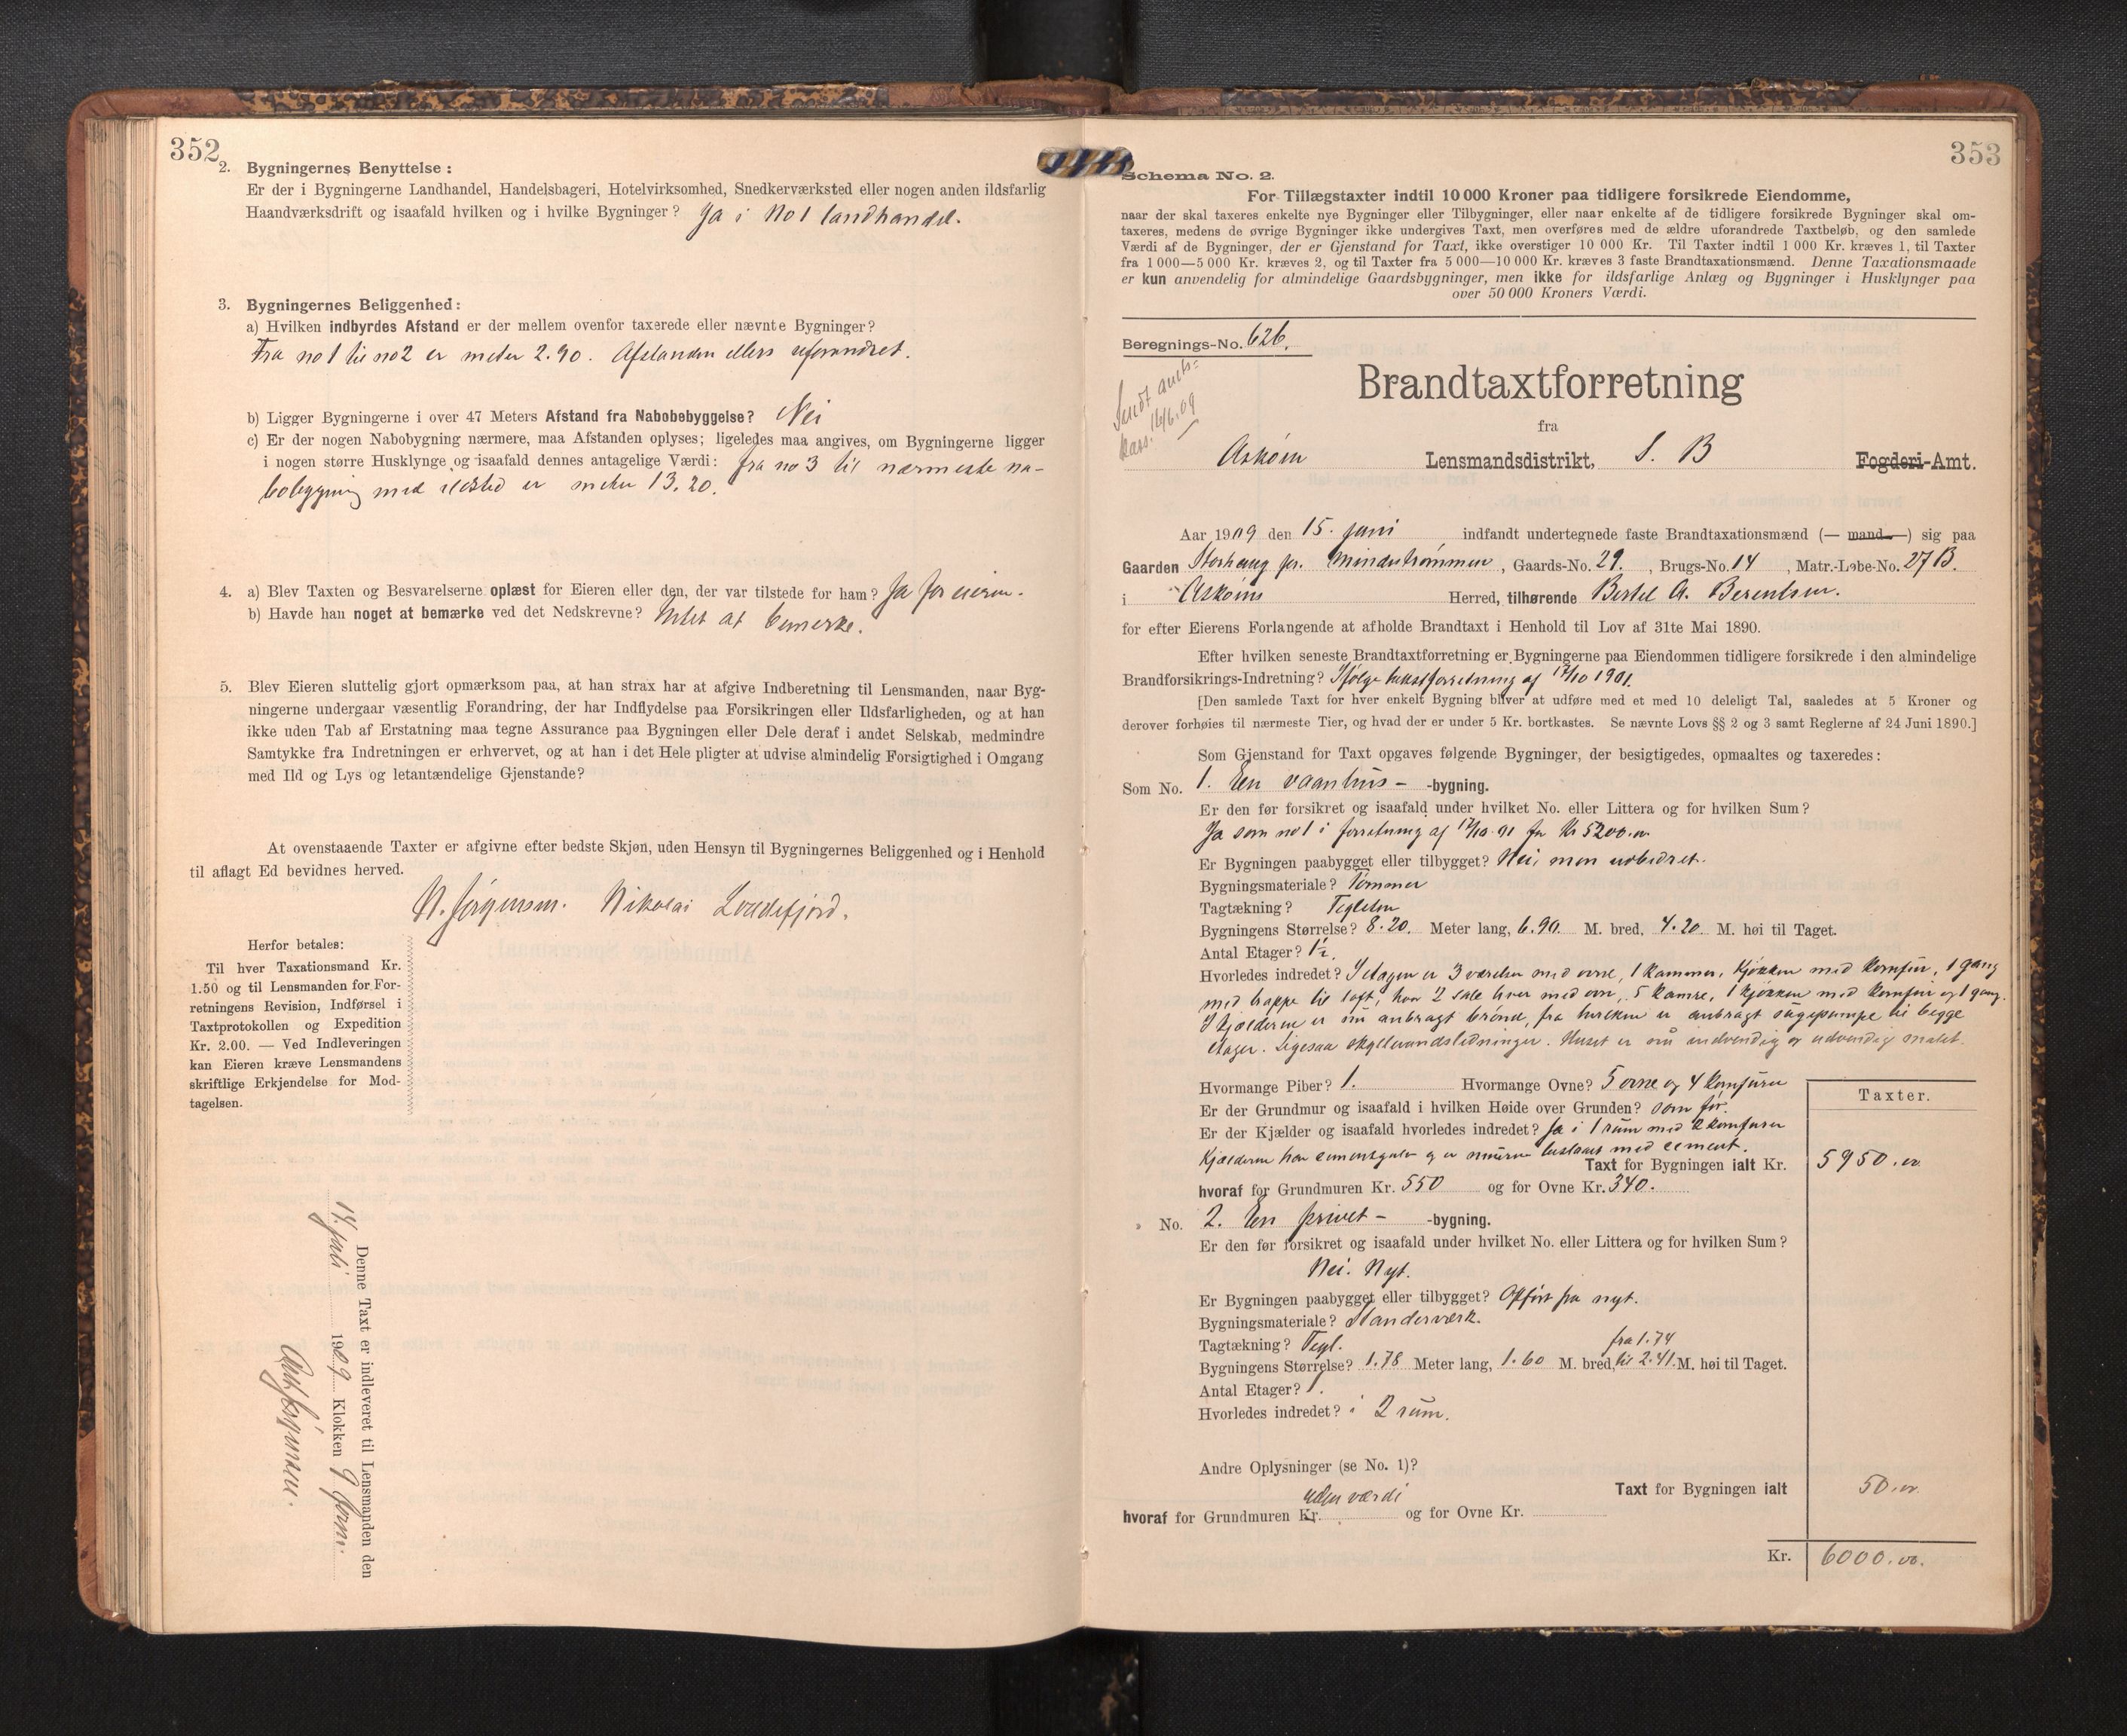 352
2. Bygningernes Benyttelse:
Er der i Bygningerne Landhandel, Handelsbageri, Hotelvirksomhed, Snedkerværksted eller nogen anden ildsfarlig
Haandværksdrift og isaafald hvilken og i hvilke Bygninger? Ja i No 1 landhandel.
3. Bygningernes Beliggenhed:
a) Hvilken indbyrdes Afstand er der mellem ovenfor taxerede eller nævnte Bygninger?
Fra no 1 til no 2 er meter 2.90. Afstanden ellers uforandret.
b) Ligger Bygningerne i over 47 Meters Afstand fra Nabobebyggelse? Nei
c) Er der nogen Nabobygning nærmere, maa Afstanden oplyses; ligeledes maa angives, om Bygningerne ligger
i nogen større Husklynge og isaafald dennes antagelige Værdi: fra no 3 til nærmeste na-
bobygning med ildsted er meter 13.20.
4. a) Blev Taxten og Besvarelserne oplæst for Eieren eller den, der var tilstede for ham? Ja for eieren.
b) Havde han noget at bemærke ved det Nedskrevne? Intet at bemerke.
5. Blev Eieren sluttelig gjort opmærksom paa, at han strax har at afgive Indberetning til Lensmanden, naar Byg-
ningerne undergaar væsentlig Forandring, der har Indflydelse paa Forsikringen eller Ildsfarligheden, og at han
ikke uden Tab af Erstatning maa tegne Assurance paa Bygningen eller Dele deraf i andet Selskab, medmindre
Samtykke fra Indretningen er erhvervet, og at han i det Hele pligter at udvise almindelig Forsigtighed i Omgang
med Ild og Lys og letantændelige Gjenstande?
At ovenstaaende Taxter er afgivne efter bedste Skjøn, uden Hensyn til Bygningernes Beliggenhed og i Henhold
til aflagt Ed bevidnes herved.
N. Jørgensen. Nikolai Loddefjord.
Herfor betales:
Til hver Taxationsmand Kr.
1.50 og til Lensmanden for For-
retningens Revision, Indførsel i
Taxtprotokollen og Expedition
Kr. 2.00. — Ved Indleveringen
kan Eieren kræve Lensmandens
skriftlige Erkjendelse for Mod-
tagelsen.
Denne Taxt er indleveret til Lensmanden den
14. juli 1909 Klokken 9 form.
353
Schema No. 2.
For Tillægstaxter indtil 10 000 Kroner paa tidligere forsikrede Eiendomme,
naar der skal taxeres enkelte nye Bygninger eller Tilbygninger, eller naar enkelte af de tidligere forsikrede Bygninger skal om-
taxeres, medens de øvrige Bygninger ikke undergives Taxt, men overføres med de ældre uforandrede Taxtbeløb, og den samlede
Værdi af de Bygninger, der er Gjenstand for Taxt, ikke overstiger 10 000 Kr. Til Taxter indtil 1 000 Kr. kræves 1, til Taxter
fra 1 000—5 000 Kr. kræves 2, og til Taxter fra 5 000—10 000 Kr. kræves 3 faste Brandtaxationsmænd. Denne Taxationsmaade
er kun anvendelig for almindelige Gaardsbygninger, men ikke for ildsfarlige Anlæg og Bygninger i Husklynger paa
over 50 000 Kroners Værdi.
Beregnings-No. 626.
Sendt amts-
kass. 16/6.09
Brandtaxtforretning
fra
Askøen Lensmandsdistrikt, S. B Fogderi-Amt.
Aar 1909 den 15. juni indfandt undertegnede faste Brandtaxationsmænd (— mand —) sig paa
Gaarden Storhaug pr. Mindestrømmen, Gaards-No. 29., Brugs-No. 14, Matr.-Løbe-No. 27 B.
i Askøens Herred, tilhørende Bertel A. Berentsen.
for efter Eierens Forlangende at afholde Brandtaxt i Henhold til Lov af 31te Mai 1890.
Efter hvilken seneste Brandtaxtforretning er Bygningerne paa Eiendommen tidligere forsikrede i den almindelige
Brandforsikrings-Indretning? Ifølge takstforretning af 17/10 1901.
[Den samlede Taxt for hver enkelt Bygning bliver at udføre med et med 10 deleligt Tal, saaledes at 5 Kroner og
derover forhøies til nærmeste Tier, og hvad der er under 5 Kr. bortkastes. Se nævnte Lovs §§ 2 og 3 samt Reglerne af 24 Juni 1890.]
Som Gjenstand for Taxt opgaves følgende Bygninger, der besigtigedes, opmaaltes og taxeredes:
Som No. 1. En vaanhus- -bygning.
Er den før forsikret og isaafald under hvilket No. eller Littera og for hvilken Sum?
Ja som no 1 i forretning af 17/10 01 for Kr 5200.00
Er Bygningen paabygget eller tilbygget? Nei, men udbedret.
Bygningsmateriale? Tømmer
Tagtækning? Teglsten
Bygningens Størrelse? 8.20. Meter lang, 6.90. M. bred, 4.20 M. høi til Taget.
Antal Etager? 1½.
Hvorledes indredet? I etagen er 3 værelser med ovne, 1 kammer, kjøkken med komfur, 1 gang
med trappe til loft, hvor 2 sale hver med ovn, 5 kamre, 1 kjøkken med komfur og 1 gang.
I kjælderen er nu anbragt brønd, fra hvilken er anbragt sugepumpe til begge
etager. Ligesaa skyllevandsledninger. Huset er nu indvendig og udvendig malet.
Hvormange Piber? 1. Hvormange Ovne? 5 ovne og 4 komfurer
Er der Grundmur og isaafald i hvilken Høide over Grunden? som før.
Er der Kjælder og isaafald hvorledes indredet? Ja i 1 rum med 2 komfurer
Kjælderen har cementgulv og er murene beslaaet med cement.
Taxter.
Taxt for Bygningen ialt Kr. 5950.00
hvoraf for Grundmuren Kr. 550 og for Ovne Kr. 340.
No. 2. En privet- -bygning.
Er den før forsikret og isaafald under hvilket No. eller Littera og for hvilken Sum?
Nei. Nyt.
Er Bygningen paabygget eller tilbygget? Opført fra nyt.
Bygningsmateriale? Standerværk.
Tagtækning? Tegl.
Bygningens Størrelse? 1.78 Meter lang, 1.60 M. bred, fra 1.74 til 2.41 M. høi til Taget.
Antal Etager? 1.
Hvorledes indredet? i 2 rum.
Andre Oplysninger (se No. 1)?
Taxt for Bygningen ialt 50.00
hvoraf for Grundmuren Kr. uden værdi og for Ovne Kr.
Kr. 6000.00.